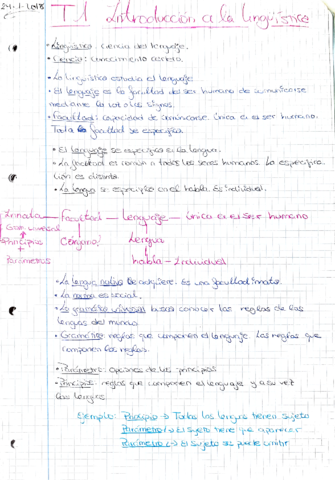 24-1-2018
T.1 Introducción a la lingüística
• Lingüística: ciencia del lenguaje.
• Ciencia: conocimiento
• La lingüística estudia el lenguaje.
• El lenguaje es la facultad del ser humano de comunicarse
mediante signos.
• Facultad: capacidad de comunicarse. Única en el ser humano.
Toda facultad se especifica.
• El lenguaje se especifica en la lengua.
• La facultad es común a todos los seres humanos. La especifica-
ción es distinta.
• La lengua se especifica en el habla. Es individual.
Innata — Facultad — Lenguaje — única en el ser humano
Gram universal
Principios
Parámetros
Lengua
habla — Individual
• La lengua nativa se adquiere. Es una facultad innata.
• La norma es social.
• La gramática universal busca conocer las reglas de las
lenguas del mundo.
• Gramática: reglas que componen el lenguaje. Las reglas que
componen las reglas.
• Parámetro: opciones de los principios
• Principio: reglas que componen el lenguaje y a su vez
las lenguas.
Ejemplo: Principio → Todas las lenguas tienen sujeto
Parámetro → El sujeto tiene que aparecer
Parámetro → El sujeto se puede omitir